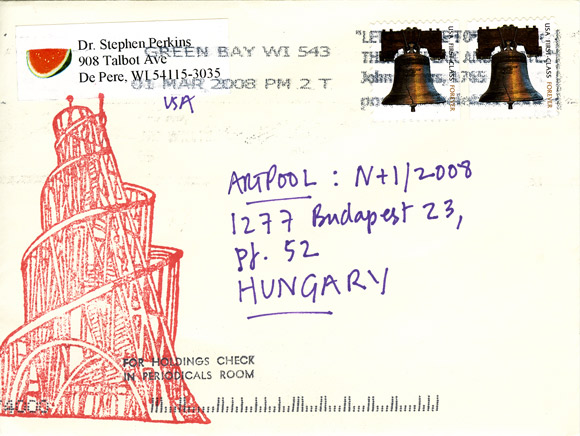 Dr. Stephen Perkins
908 Talbot Ave
De Pere, WI 54115-3035
USA
GREEN BAY WI 543
01 MAR 2008 PM 2 T
USA FIRST-CLASS FOREVER
USA FIRST-CLASS FOREVER
ARTPOOL : N+1/2008
1277 Budapest 23,
pf. 52
HUNGARY
FOR HOLDINGS CHECK
IN PERIODICALS ROOM